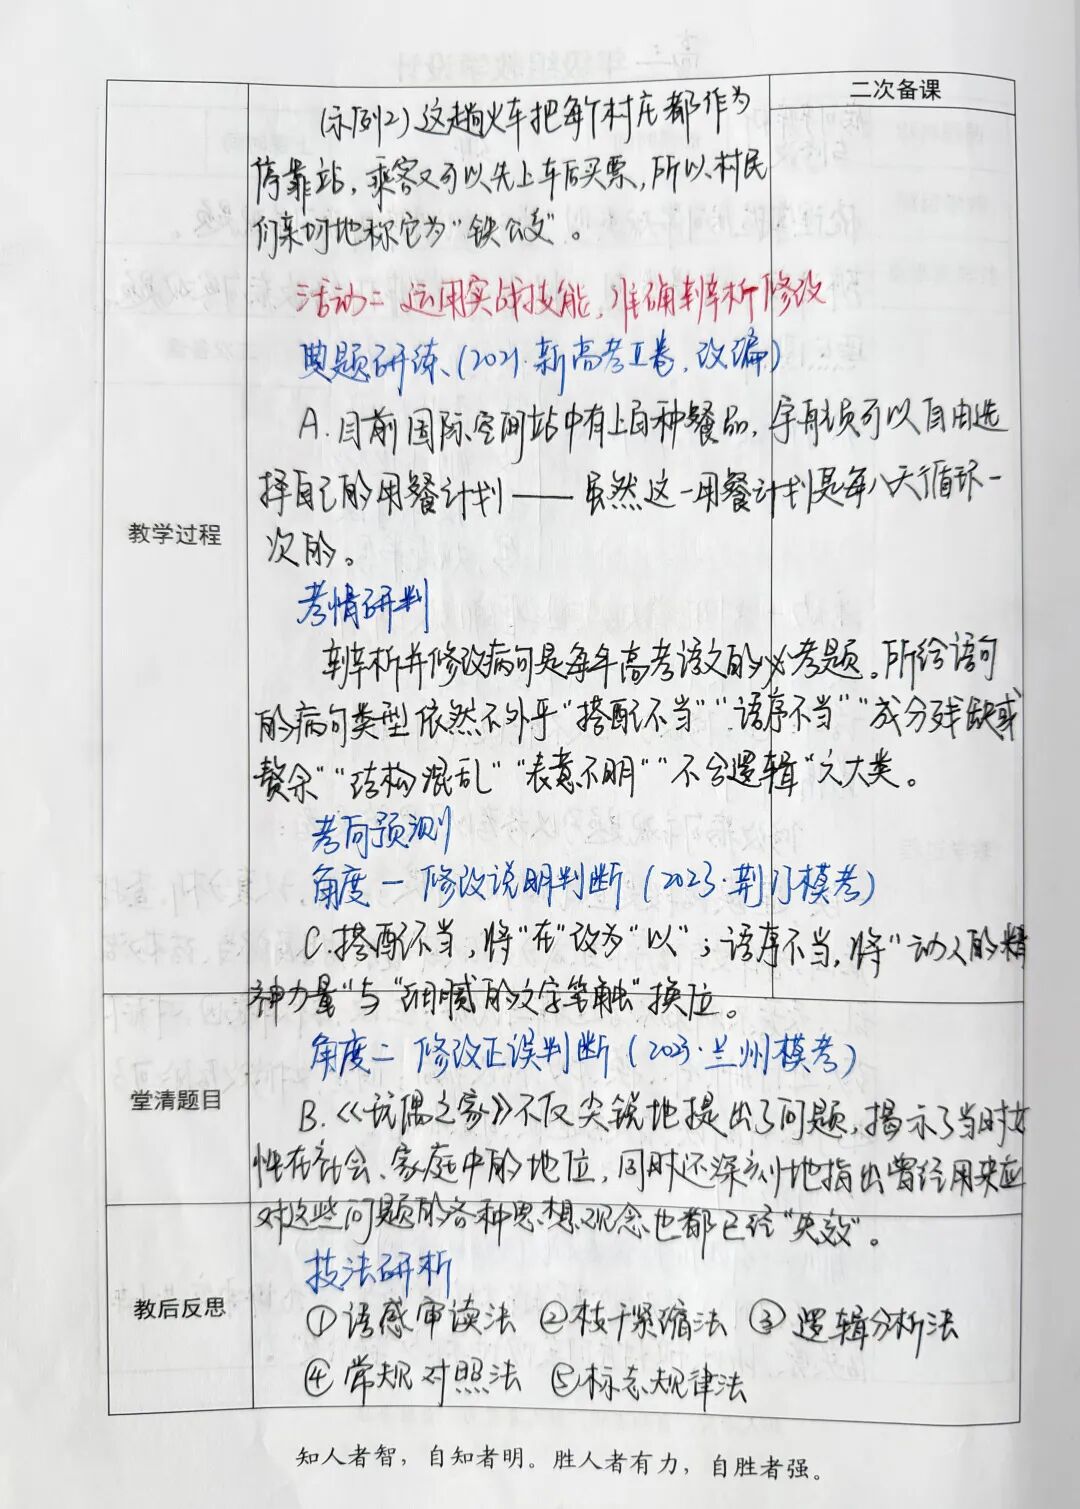 二次备课
(示例2)这趟火车把每个村庄都作为
停靠站，乘客又可以先上车后买票，所以村民
们亲切地称它为“铁公交”。
活动二 运用实战技能，准确辨析修改
典题研练(2021·新高考I卷，改编)
A.目前国际空间站中有上百种餐品，宇航员可以自由选
择自己的用餐计划——虽然这一用餐计划是每八天循环一
教学过程
次的。
考情研判
辨析并修改病句是每年高考语文的必考题。所给语句
的病句类型依然不外乎“搭配不当”“语序不当”“成分残缺或
赘余”“结构混乱”“表意不明”“不合逻辑”六大类。
考向预测
角度一 修改说明判断(2023·荆门模考)
C.搭配不当，将“在”改为“以”；语序不当，将“动人的精
神力量”与“细腻的文字笔触”换位。
角度二 修改正误判断(2023·兰州模考)
堂清题目
B.《玩偶之家》不仅尖锐地提出了问题，揭示了当时女
性在社会、家庭中的地位，同时还深刻地指出曾经用来应
对这些问题的各种思想观念也都已经“失效”。
技法研析
教后反思
①语感审读法 ②枝干紧缩法 ③逻辑分析法
④常规对照法 ⑤标志规律法
知人者智，自知者明。胜人者有力，自胜者强。